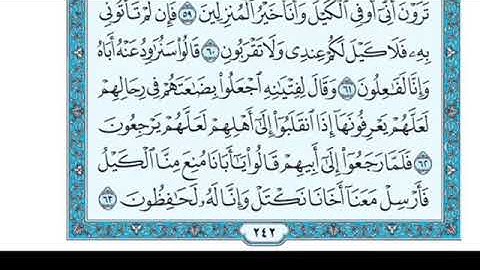 تَرَوْنَ أَنِّىٓ أُوفِى ٱلْكَيْلَ وَأَنَا۠ خَيْرُ ٱلْمُنزِلِينَ ٥٩ فَإِن لَّمْ تَأْتُونِى
بِهِۦ فَلَا كَيْلَ لَكُمْ عِندِى وَلَا تَقْرَبُونِ ٦٠ قَالُوا۟ سَنُرَٰوِدُ عَنْهُ أَبَاهُ
وَإِنَّا لَفَٰعِلُونَ ٦١ وَقَالَ لِفِتْيَٰنِهِ ٱجْعَلُوا۟ بِضَٰعَتَهُمْ فِى رِحَالِهِمْ
لَعَلَّهُمْ يَعْرِفُونَهَآ إِذَا ٱنقَلَبُوٓا۟ إِلَىٰٓ أَهْلِهِمْ لَعَلَّهُمْ يَرْجِعُونَ
٦٢ فَلَمَّا رَجَعُوٓا۟ إِلَىٰٓ أَبِيهِمْ قَالُوا۟ يَٰٓأَبَانَا مُنِعَ مِنَّا ٱلْكَيْلُ
فَأَرْسِلْ مَعَنَآ أَخَانَا نَكْتَلْ وَإِنَّا لَهُۥ لَحَٰفِظُونَ ٦٣
٢٤٢